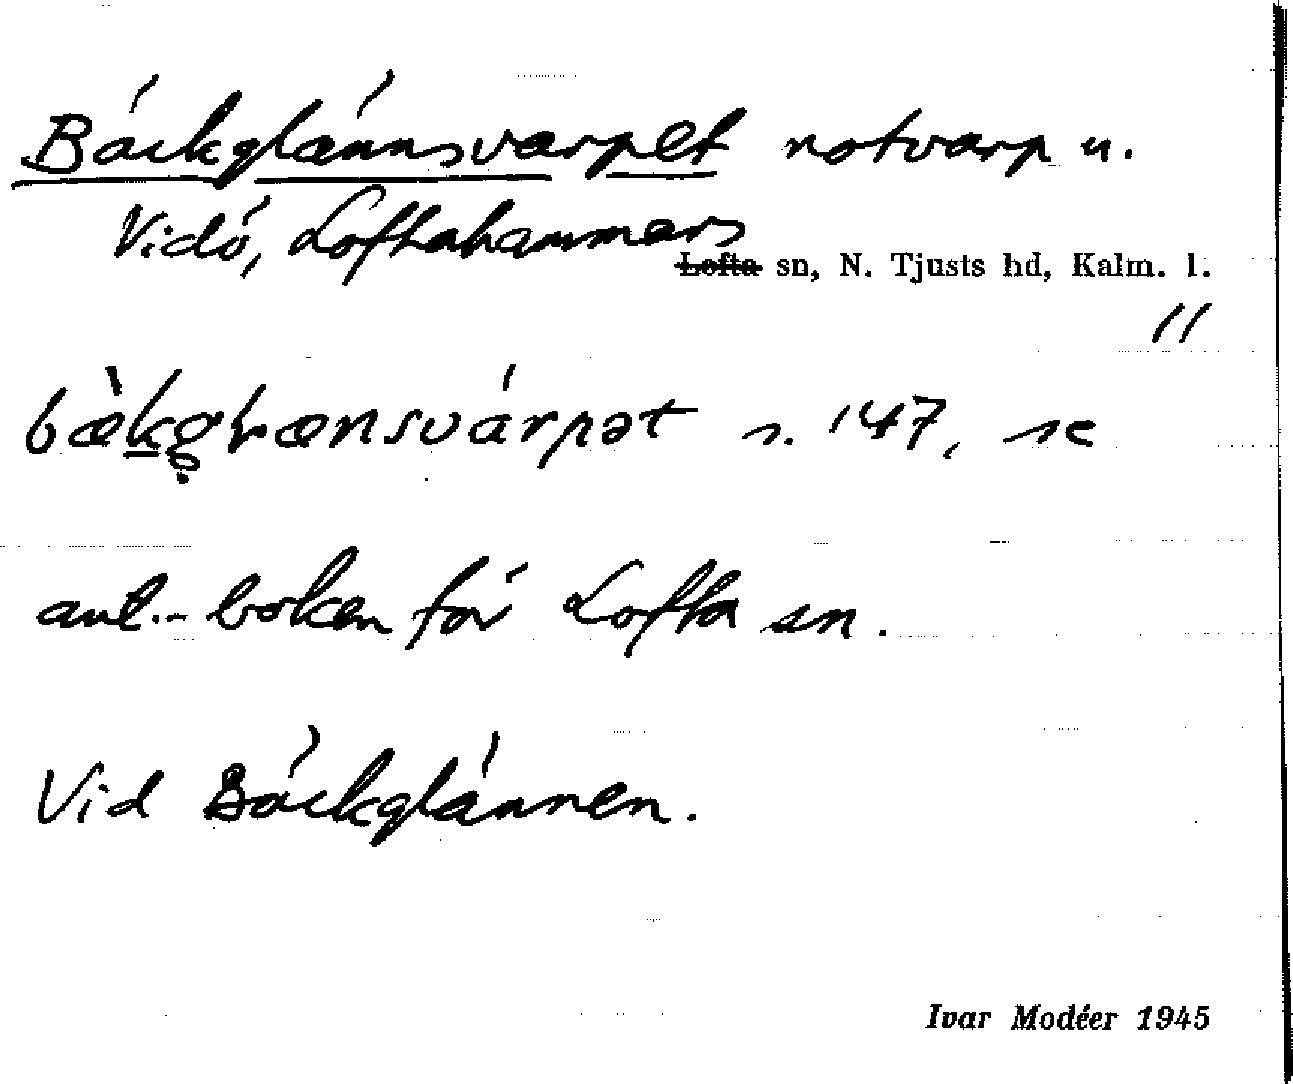 Bäckglännsvarpet notvarp u.
Vidö, Loftahammars
Lofta sn, N. Tjusts hd, Kalm. l.
11
s. 147, se
ant.-boken för Lofta sn.
Vid Bäckglännen.
Ivar Modéer 1945